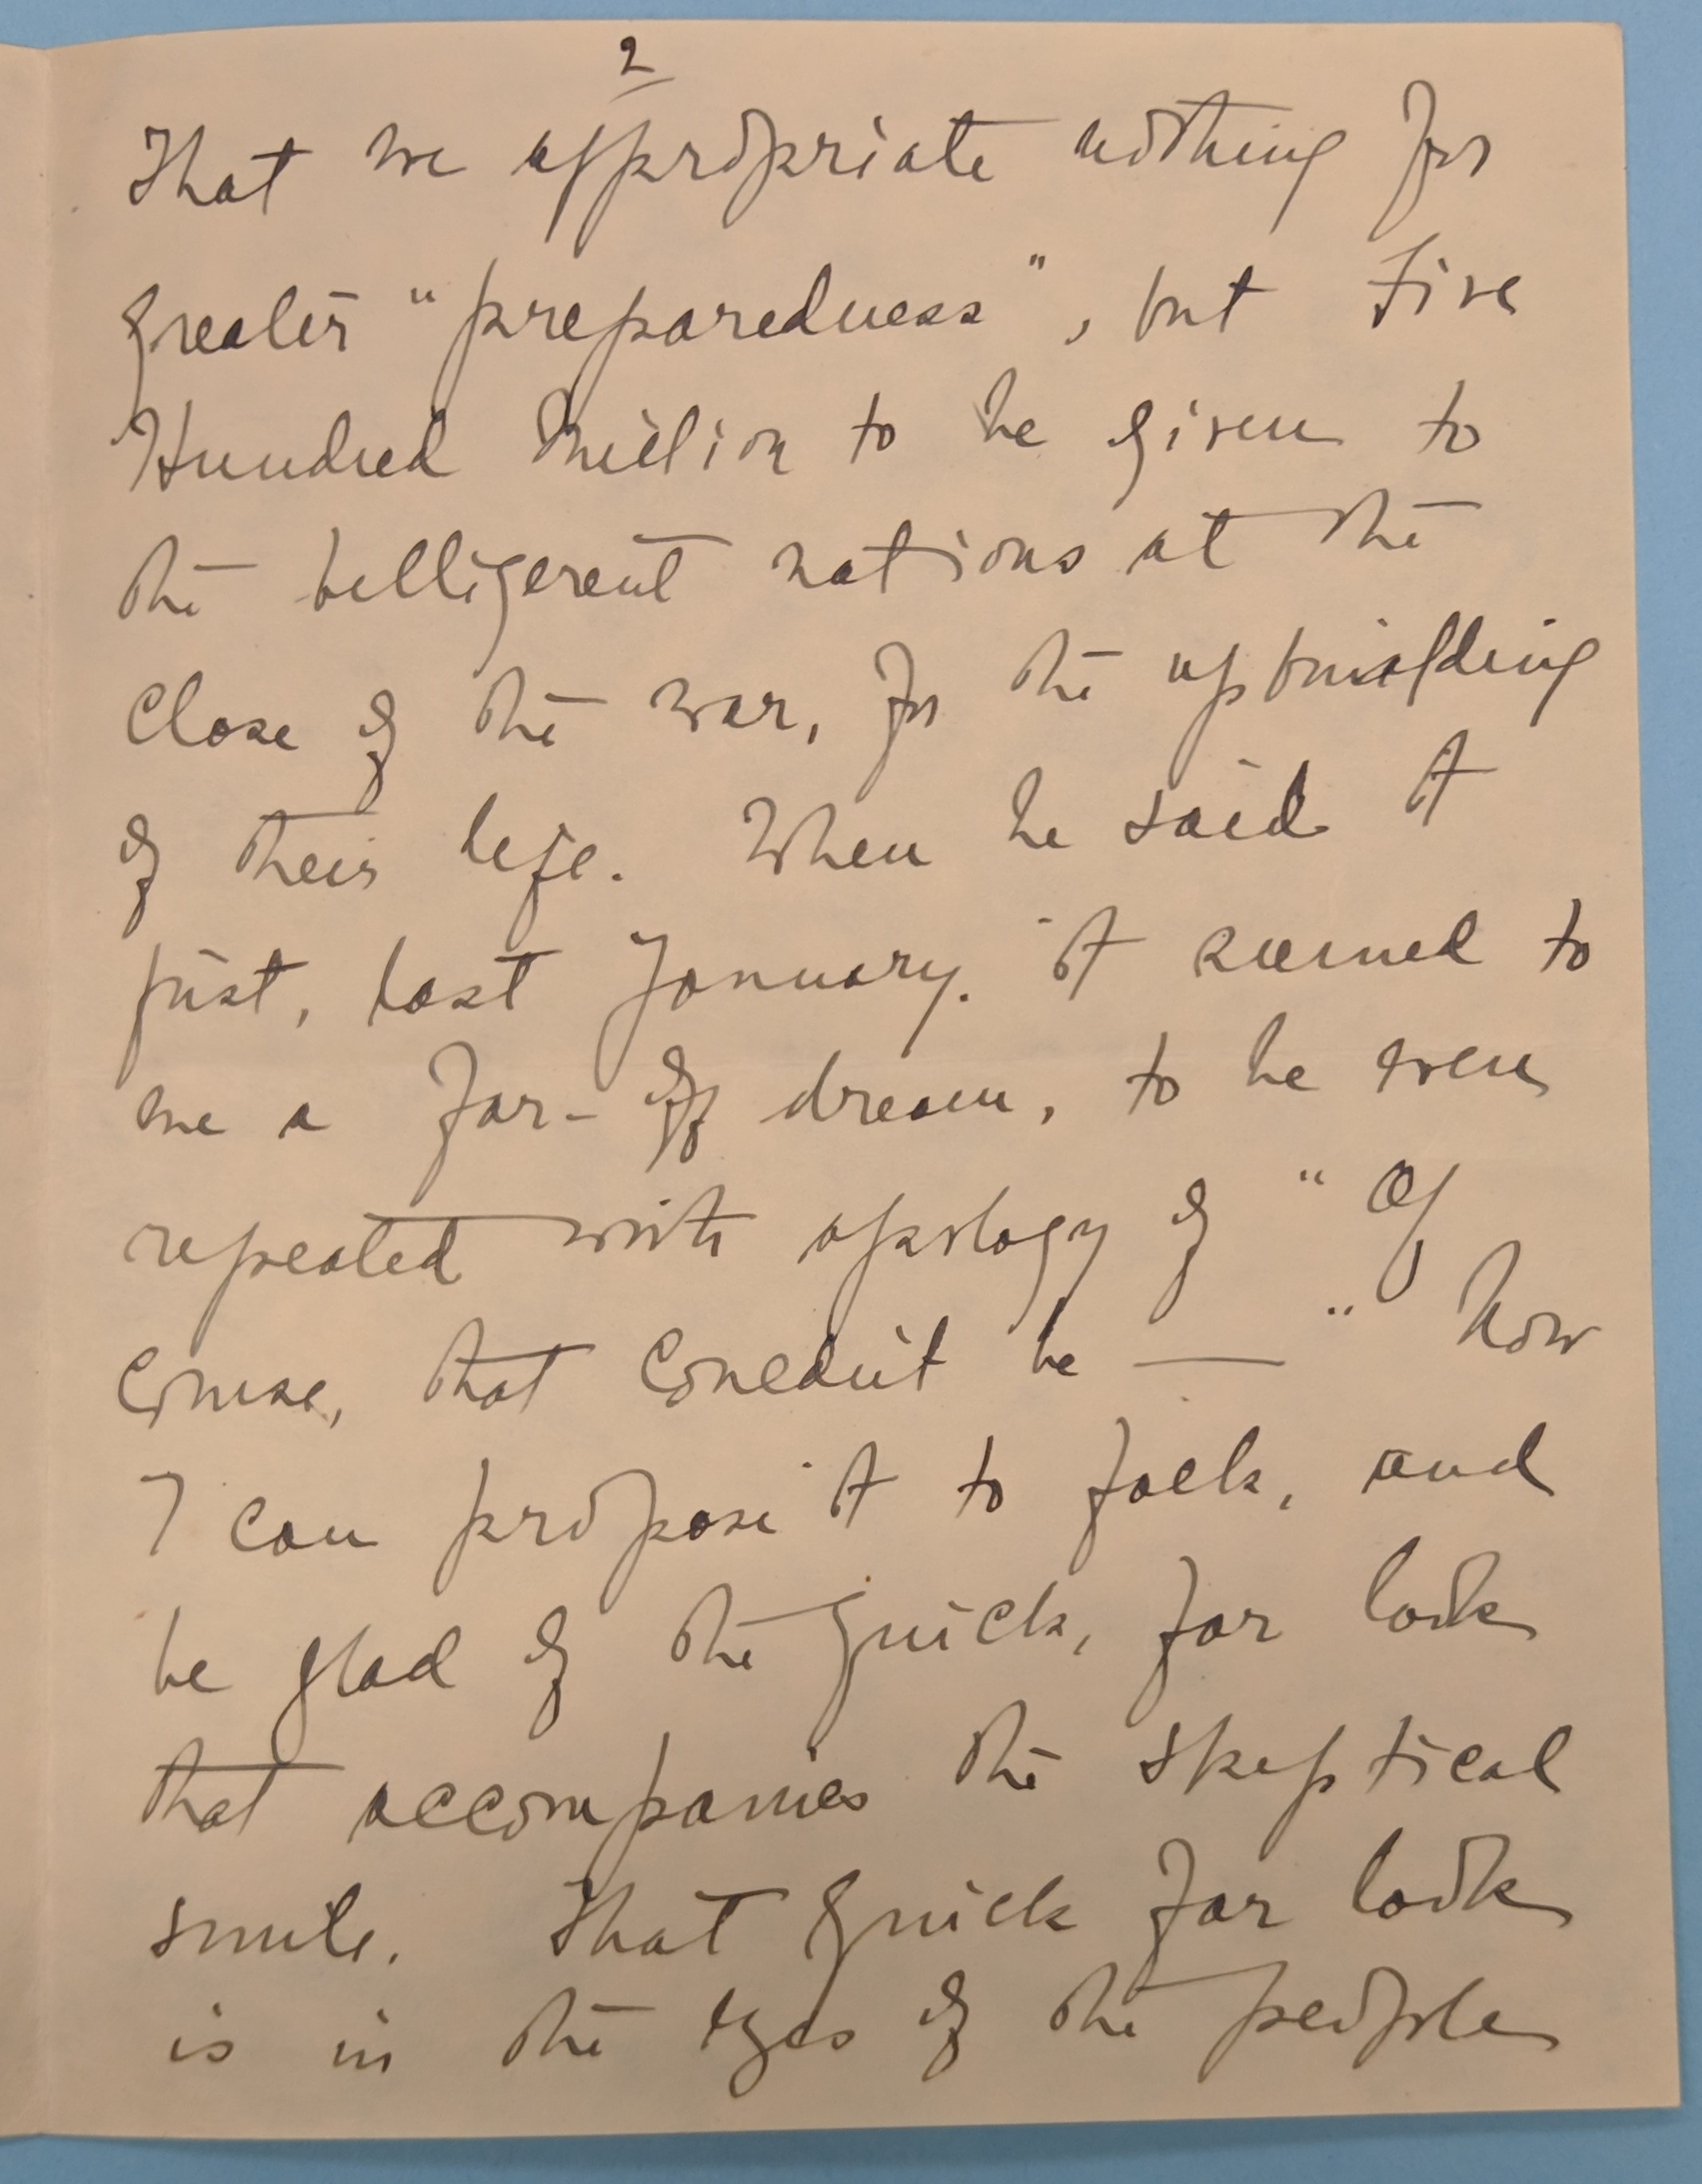 2
That we appropriate nothing for
greater "preparedness", but Five
Hundred Million to be given to
the belligerent nations at the
close of the war, for the upbuilding
of their life. When he said it
first, last January, it seemed to
me a far-off dream, to be even
repeated with apology of "Of
course, that couldn't be — " Now
I can propose it to folk, and
be glad of the quick, far look
that accompanies the skeptical
smile. That quick far look
is in the eyes of the people